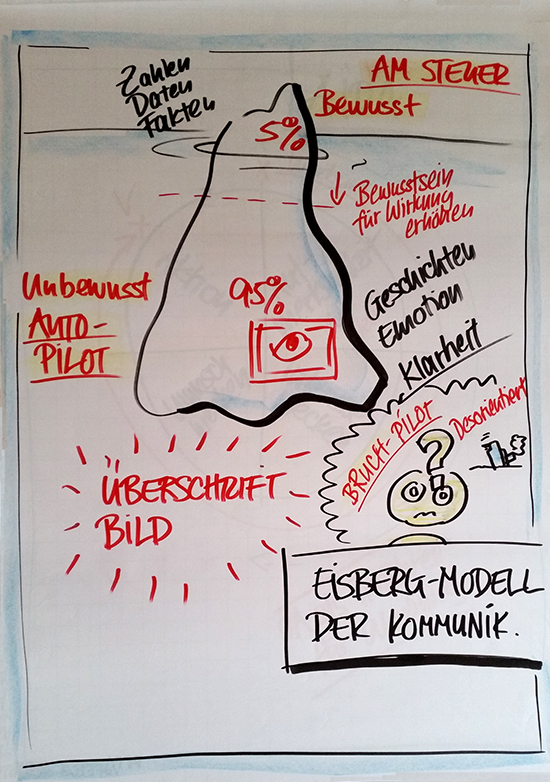 Zahlen
Daten
Fakten
AM STEUER
Bewusst
5%
Bewusstsein
für Wirkung
erhöhen
Unbewusst
AUTO-
PILOT
95%
Geschichten
Emotion
Klarheit
BRUCH-PILOT
Desorientiert
?
ÜBERSCHRIFT
BILD
EISBERG-MODELL
DER KOMMUNIK.